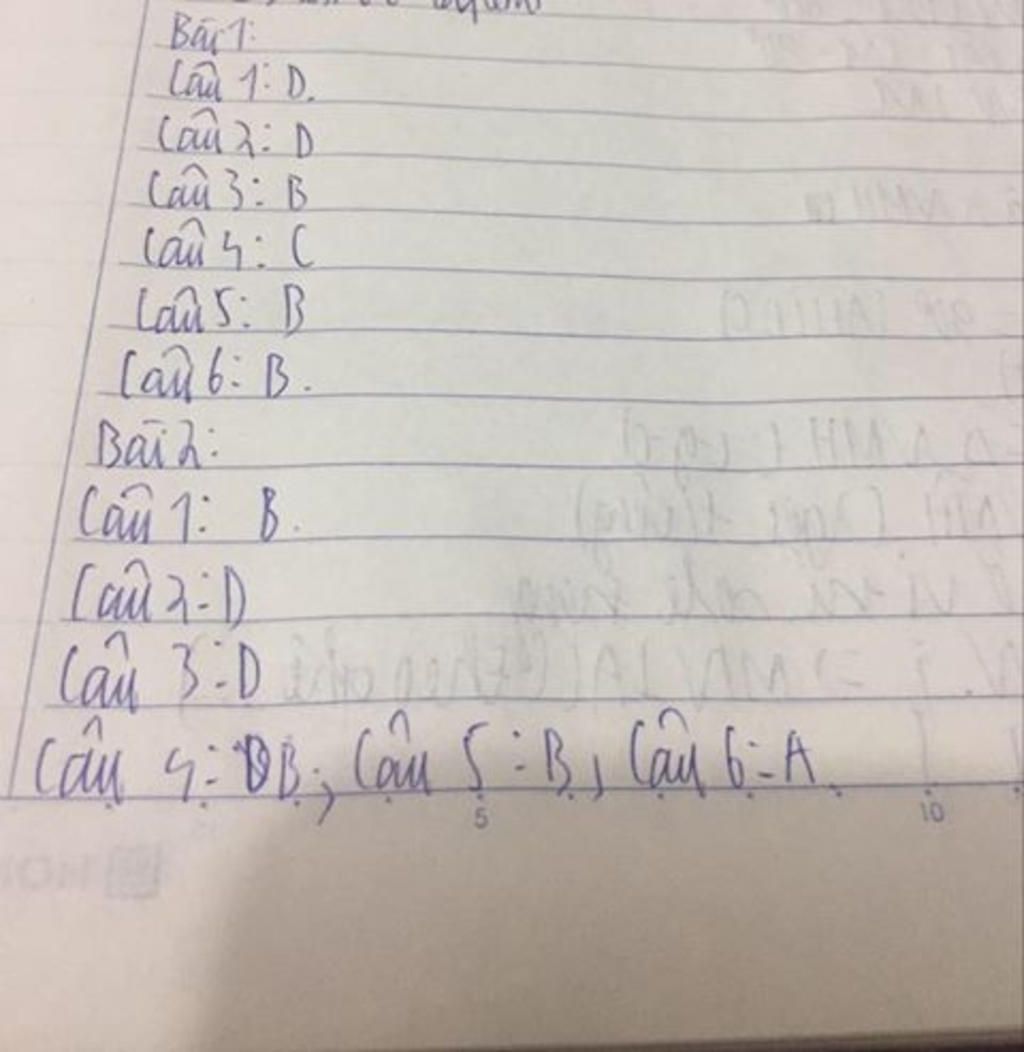 Bài 1:
Câu 1: D.
Câu 2: D
Câu 3: B
Câu 4: C
Câu 5: B
Câu 6: B.
Bài 2:
Câu 1: B.
Câu 2: D
Câu 3: D
Câu 4: B; Câu 5: B, Câu 6: A.
5 10